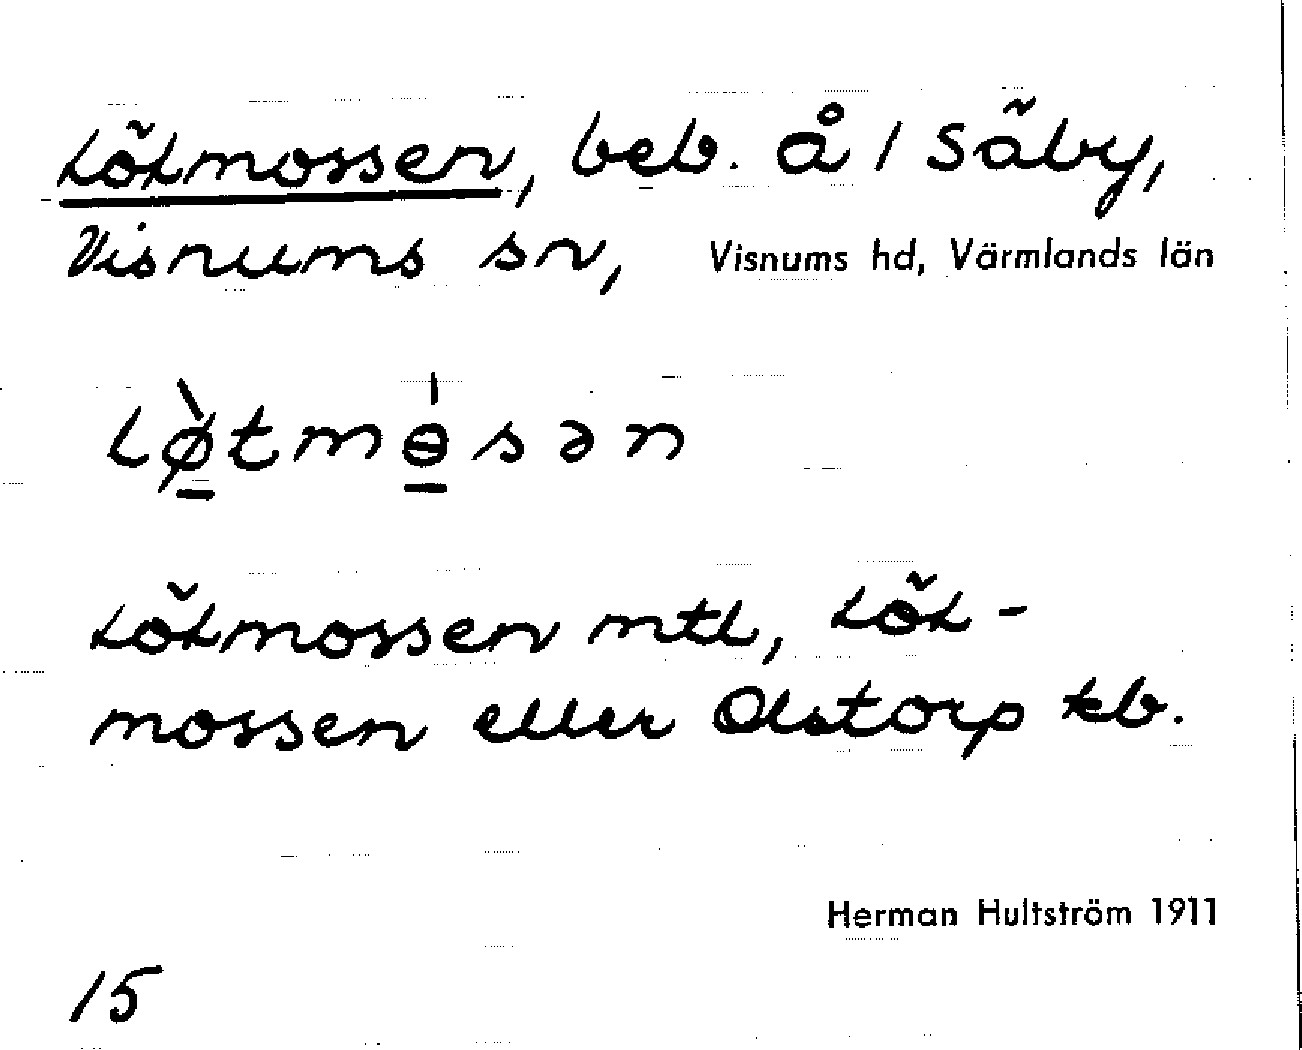 Lötmossen, beb. å / Säby,
Visnums sn, Visnums hd, Värmlands län
Lø̠̀tmɵ̠̍sən
Lötmossen mtl, Löt-
mossen eller Olstorp kb.
Herman Hultström 1911
15